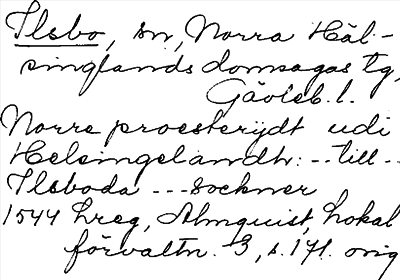 Ilsbo, sn, Norra Häl-
singlands domsagas tg,
Gävleb. l.
Norre proesterijdt udi
Helsingelandh: -- till --
Ilsboda --- sockner
1544 hreg, Almquist, Lokal
förvaltn. 3, s. 171. orig